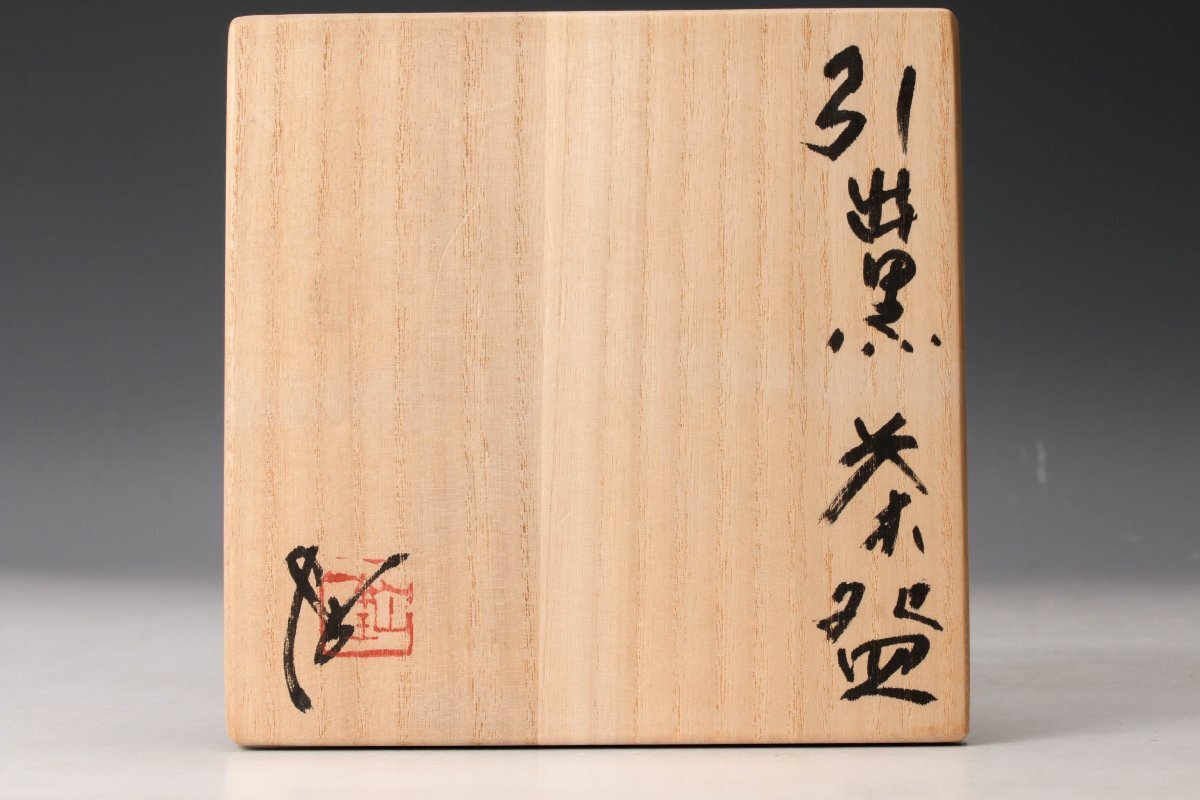 引出黒 茶盌